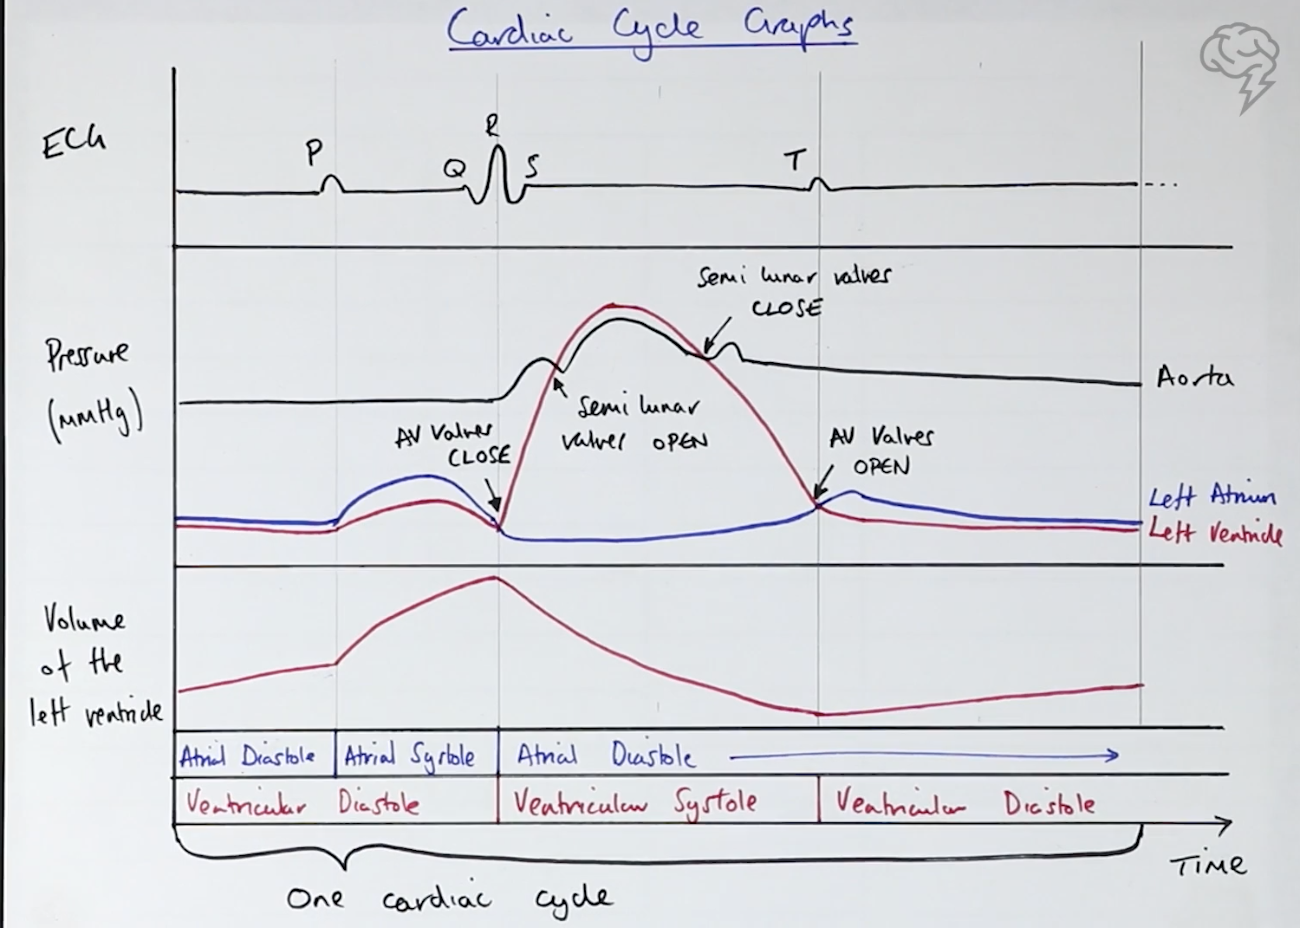 Cardiac Cycle Graphs
ECG
P
Q
R
S
T
Pressure
(mmHg)
Semi lunar valves
CLOSE
Semi lunar
valves OPEN
AV Valves
CLOSE
AV Valves
OPEN
Aorta
Left Atrium
Left Ventricle
Volume
of the
left ventricle
Atrial Diastole
Atrial Systole
Atrial Diastole
Ventricular Diastole
Ventricular Systole
Ventricular Diastole
Time
One cardiac cycle